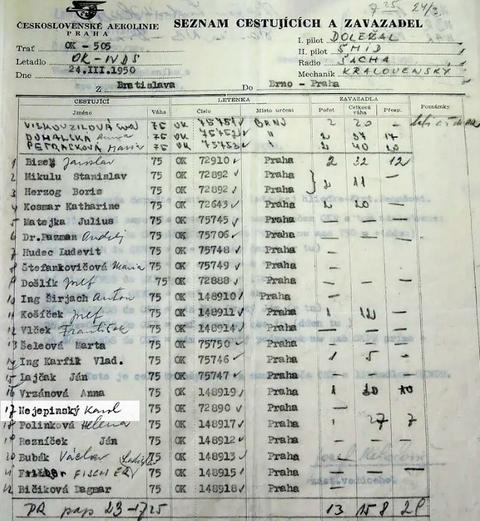 7 25 24/3
ČESKOSLOVENSKÉ AEROLINIE
PRAHA
SEZNAM CESTUJÍCÍCH A ZAVAZADEL
Trať OK - 505
I. pilot DOLEŽAL
Letadlo OK-WDS
II. pilot ŠMÍD
Radio SACHA
Dne 24.III.1950
Mechanik KRÁLOVENSKÝ
Z Bratislava Do Brno - Praha
CESTUJÍCÍ LETENKA ZAVAZADLA
Jméno Váha Číslo Místo určení Počet Celková váha Přesp. Poznámky
75 OK 75751 BRNO 2 20 -
75 OK 75752 " 2 37 17
75 OK 75753 " 2 40 20
1 Bizek Jaroslav 75 OK 72910 Praha 2 32 12
2 Mikulu Stanislav 75 OK 72892 Praha
3 Herzog Boris 75 OK 72892 Praha 2 11 -
4 Kosmar Katharine 75 OK 72643 Praha 2 20 -
5 Matejka Julius 75 OK 75745 Praha - - -
6 Dr.Pazman Andrej 75 OK 75706 Praha - - -
7 Hudec Ludevit 75 OK 75748 Praha - - -
8 Štefankovičová Maria 75 OK 75749 Praha - - -
9 Došlik Josef 75 OK 72888 Praha - - -
10 Ing Širjach Anton 75 OK 148910 Praha - - -
11 Košíček Josef 75 OK 148911 Praha 1 12 -
12 Vlček František 75 OK 148914 Praha - - -
13 Šeleová Marta 75 OK 75750 Praha - - -
14 Ing Karfik Vlad. 75 OK 75746 Praha 1 5 -
15 Lajčak Ján 75 OK 75747 Praha - - -
16 Vrzánová Anna 75 OK 148919 Praha 1 20 10
17 Nejepinský Karol 75 OK 72890 Praha - - -
18 Polinková Helena 75 OK 148917 Praha 1 27 7
19 Rezníček Ján 75 OK 148912 Praha - - -
20 Bubák Václav 75 OK 148913 Praha - - -
21 FISCHER Ladislav 75 OK 148915 Praha - - -
22 Bičiková Dagmar 75 OK 148918 Praha - - -
PR pap 23-1725 13 158 28